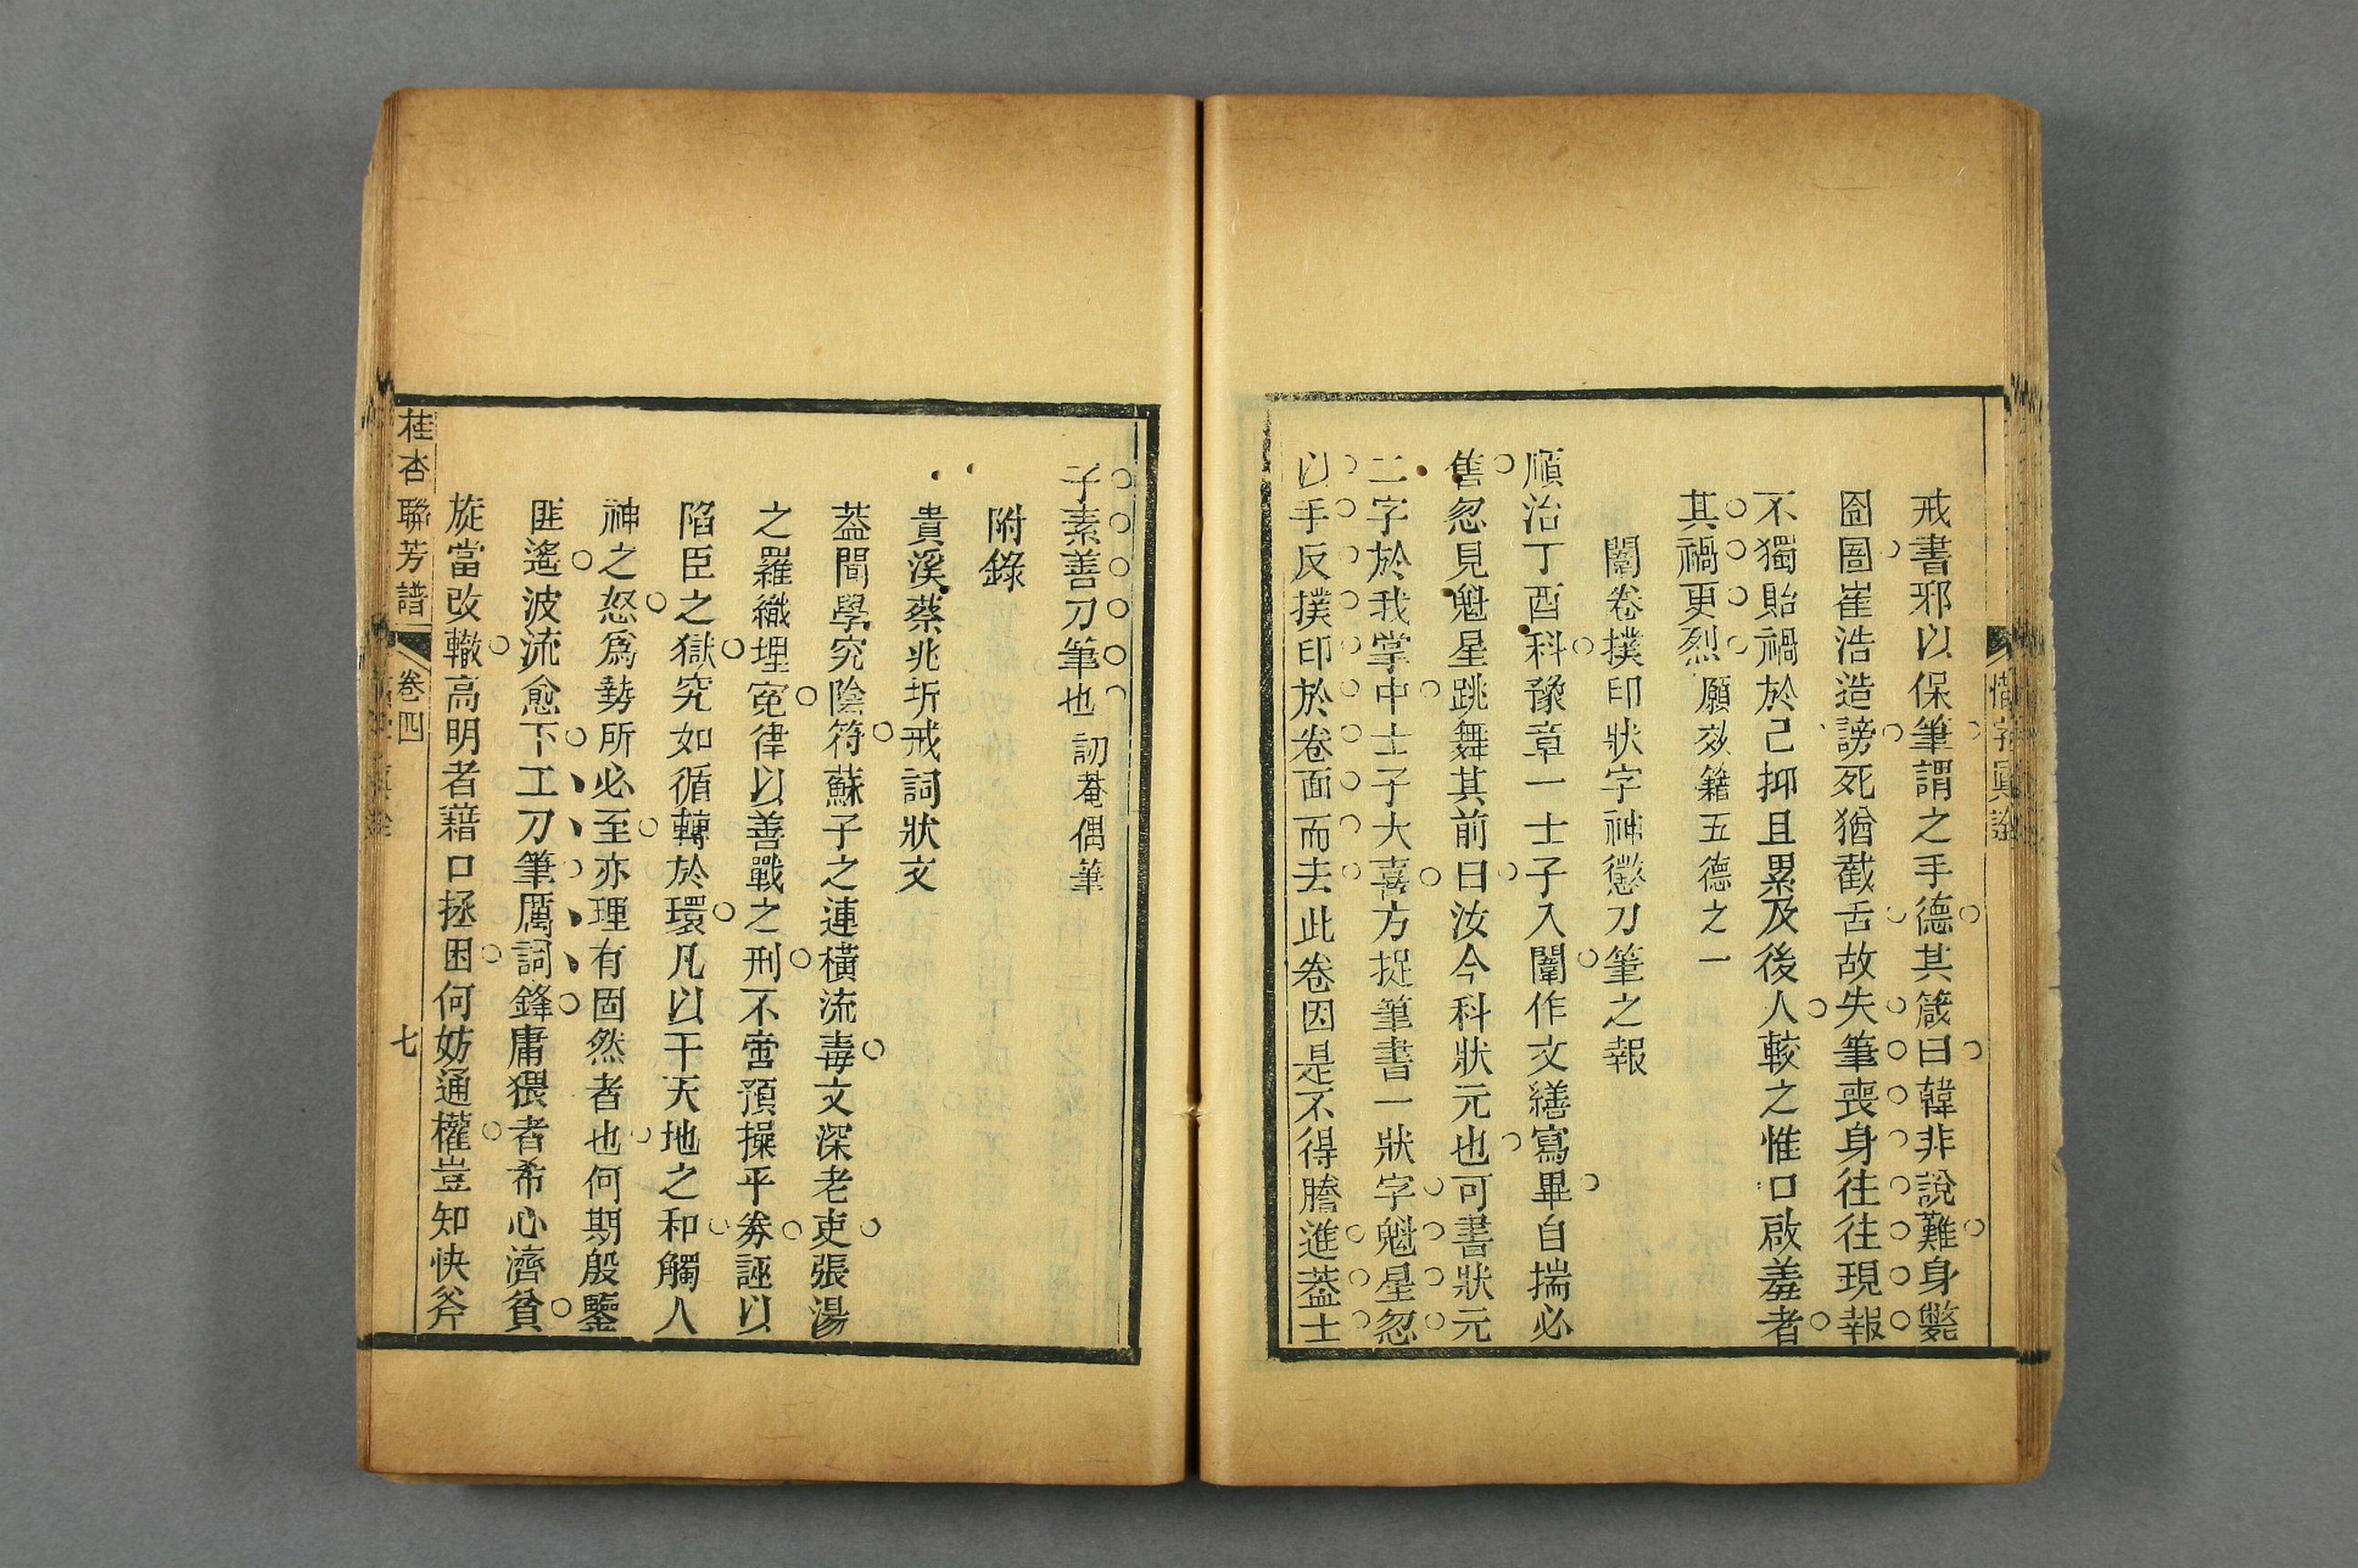 戒書邪以保筆謂之手德其箴曰韓非說難身斃
囹圄崔浩造謗死猶截舌故失筆喪身往往現報
不獨貽禍於己抑且累及後人較之惟口啟羞者
其禍更烈願效籍五德之一
闈卷撲印狀字神懲刀筆之報
順治丁酉科豫章一士子入闈作文繕寫畢自揣必
售忽見魁星跳舞其前曰汝今科狀元也可書狀元
二字於我掌中士子大喜方捉筆書一狀字魁星忽
以手反撲印於卷面而去此卷因是不得謄進葢士
子素善刀筆也 訒菴偶筆
附錄
貴溪蔡兆圻戒詞狀文
葢聞學究陰符蘇子之連橫流毒文深老吏張湯
之羅織埋寃律以善戰之刑不啻預操平劵誣以
陷臣之獄究如循轉於環凡以干天地之和觸人
神之怒爲勢所必至亦理有固然者也何期殷鑒
匪遙波流愈下工刀筆厲詞鋒庸猥者希心濟貧
旋當改轍高明者藉口拯困何妨通權豈知快斧
桂杏聯芳譜 卷四 七